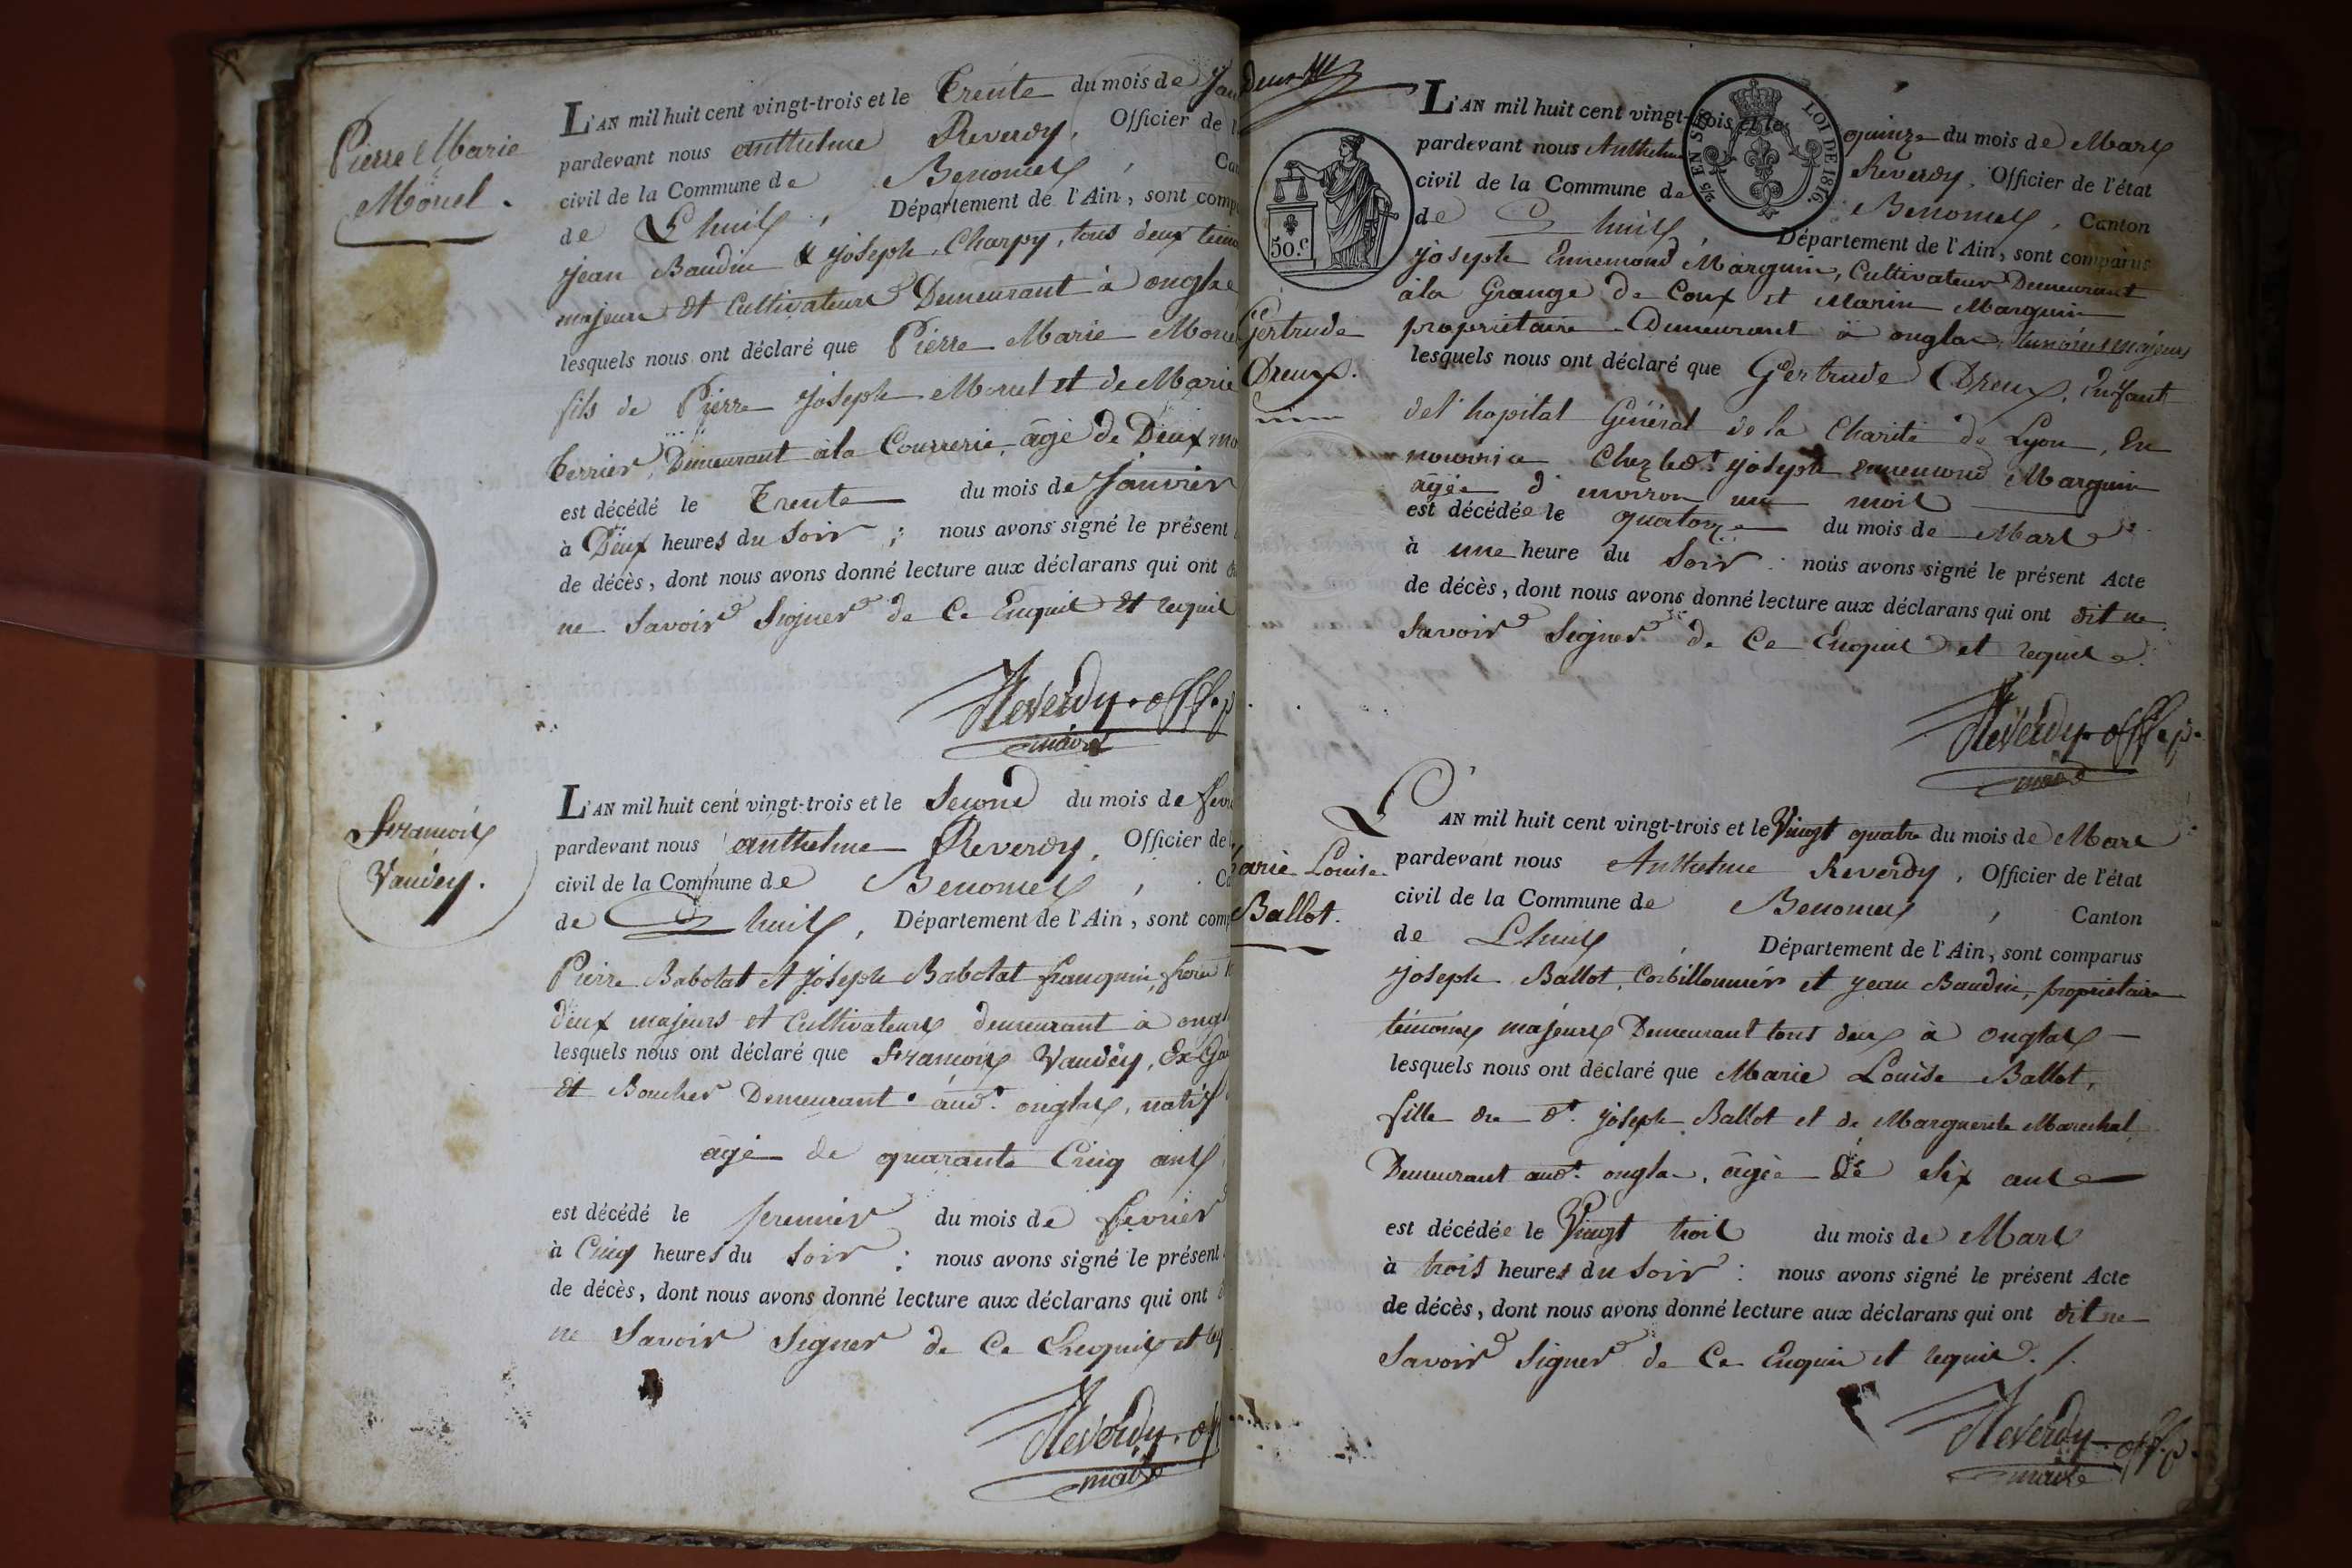 Pierre Marie
Morel.
L'AN mil huit cent vingt-trois et le Trente du mois de Jan
pardevant nous anthelme Reverdy, Officier de l
civil de la Commune de Benonces, Ca
de Lhuis, Département de l'Ain, sont comp
jean Baudin & joseph Charpy, tous deux temo
majeurs et Cultivateurs Demeurant à onglas
lesquels nous ont déclaré que Pierre Marie Morel
fils de Pierre joseph Morel et de Marie
Terrier, Demeurant à la Courrerie, âgé de Deux mo
est décédé le Trente du mois de Janvier
à Deux heures du Soir; nous avons signé le présent
de décès, dont nous avons donné lecture aux déclarans qui ont
ne Savoir Signer de Ce Enquis et requis
Reverdy. off. p
maire
François
Vaudey.
L'AN mil huit cent vingt-trois et le Second du mois de fevr
pardevant nous anthelme Reverdy, Officier de
civil de la Commune de Benonces, Ca
de Lhuis, Département de l'Ain, sont comp
Pierre Babolat et joseph Babolat franquin,
deux majeurs et Cultivateurs demeurant à ongl
lesquels nous ont déclaré que François Vaudey, Ex-
Et Boucher Demeurant aud. onglas, natif
âgé de quarante Cinq ans
est décédé le premier du mois de fevrier
à Cinq heures du Soir: nous avons signé le présent
de décès, dont nous avons donné lecture aux déclarans qui ont
ne Savoir Signer de Ce Enquis et
Reverdy. off
maire
Deux
50.C
2/5 EN SUS LOI DE 1816.
Gertrude
Dreux.
L'AN mil huit cent vingt-trois et le quinze du mois de Mars
pardevant nous Anthelme Reverdy, Officier de l'état
civil de la Commune de Benonces, Canton
de Lhuis, Département de l'Ain, sont comparus
joseph Ennemond Marguin, Cultivateur Demeurant
à la Grange de Coux et Marin Marguin
propriétaire Demeurant à onglas, temoins majeurs
lesquels nous ont déclaré que Gertrude Dreux, Enfant
de l'hopital Général de la Charité de Lyon, En
nourrice Chez led. joseph ennemond Marguin
âgée d'environ un mois
est décédée le quatorze du mois de Mars
à une heure du Soir: nous avons signé le présent Acte
de décès, dont nous avons donné lecture aux déclarans qui ont dit ne
Savoir Signer de Ce Enquis et requis.
Reverdy. off. p.
maire
arie Louise
Ballot.
L'AN mil huit cent vingt-trois et le Vingt quatre du mois de Mars
pardevant nous Anthelme Reverdy, Officier de l'état
civil de la Commune de Benonces, Canton
de Lhuis, Département de l'Ain, sont comparus
joseph Ballot, Corbillonnier et jean Baudin, propriétaire
témoins majeurs Demeurant tous deux à onglas
lesquels nous ont déclaré que Marie Louise Ballot,
fille du dt. joseph Ballot et de Marguerite Marechal,
Demeurant audt. onglas, âgée de Six ans
est décédée le Vingt trois du mois de Mars
à trois heures du Soir: nous avons signé le présent Acte
de décès, dont nous avons donné lecture aux déclarans qui ont dit ne
Savoir Signer de Ce Enquis et requis.
Reverdy. off. p.
maire